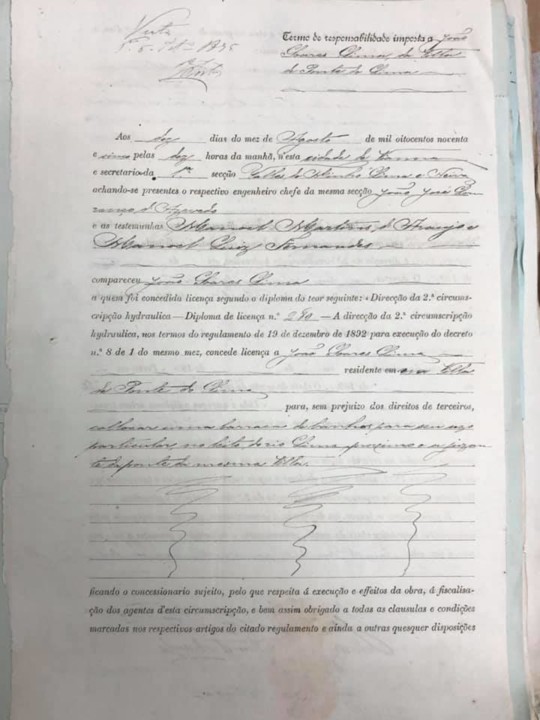 Visto
Termo de responsabilidade imposta a João
Soares Lima, da Villa
de Ponte do Lima
Aos dez dias do mez de Agosto de mil oitocentos noventa
e cinco pelas dez horas da manhã, n'esta cidade de Vianna
e secretaria da 1.ª secção Valles do Minho Lima e Neiva
achando-se presentes o respectivo engenheiro chefe da mesma secção João José
d'Azevedo
e as testemunhas Manoel Martins d'Araujo e
Manoel Luiz Fernandes
compareceu João Soares Lima
a quem foi concedida licença segundo o diploma do teor seguinte: «Direcção da 2.ª circums-
cripção hydraulica — Diploma de licença n.º 280 — A direcção da 2.ª circumscripção
hydraulica, nos termos do regulamento de 19 de dezembro de 1892 para execução do decreto
n.º 8 de 1 do mesmo mez, concede licença a João Soares Lima
residente em Villa
de Ponte do Lima
para, sem prejuizo dos direitos de terceiros,
collocar uma barraca de banhos para seu uso
particular no leito do rio Lima proximo e a juzan-
te da ponte da mesma Villa.
ficando o concessionario sujeito, pelo que respeita á execução e effeitos da obra, á fiscalisa-
ção dos agentes d'esta circumscripção, e bem assim obrigado a todas as clausulas e condições
marcadas nos respectivos artigos do citado regulamento e ainda a outras quesquer disposições